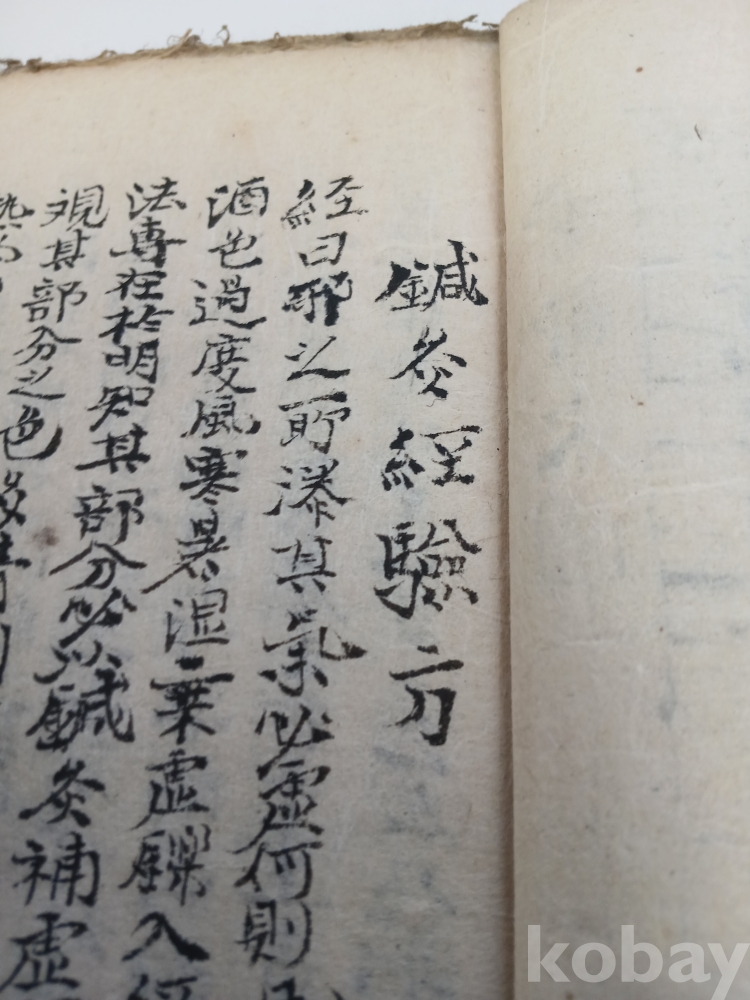 鍼灸經驗方
經曰邪之所湊其氣必虛何則
酒色過度風寒暑湿乗虛鑠入經
法專在於明知其部分必以鍼灸補虛
視其部分之色
kobay